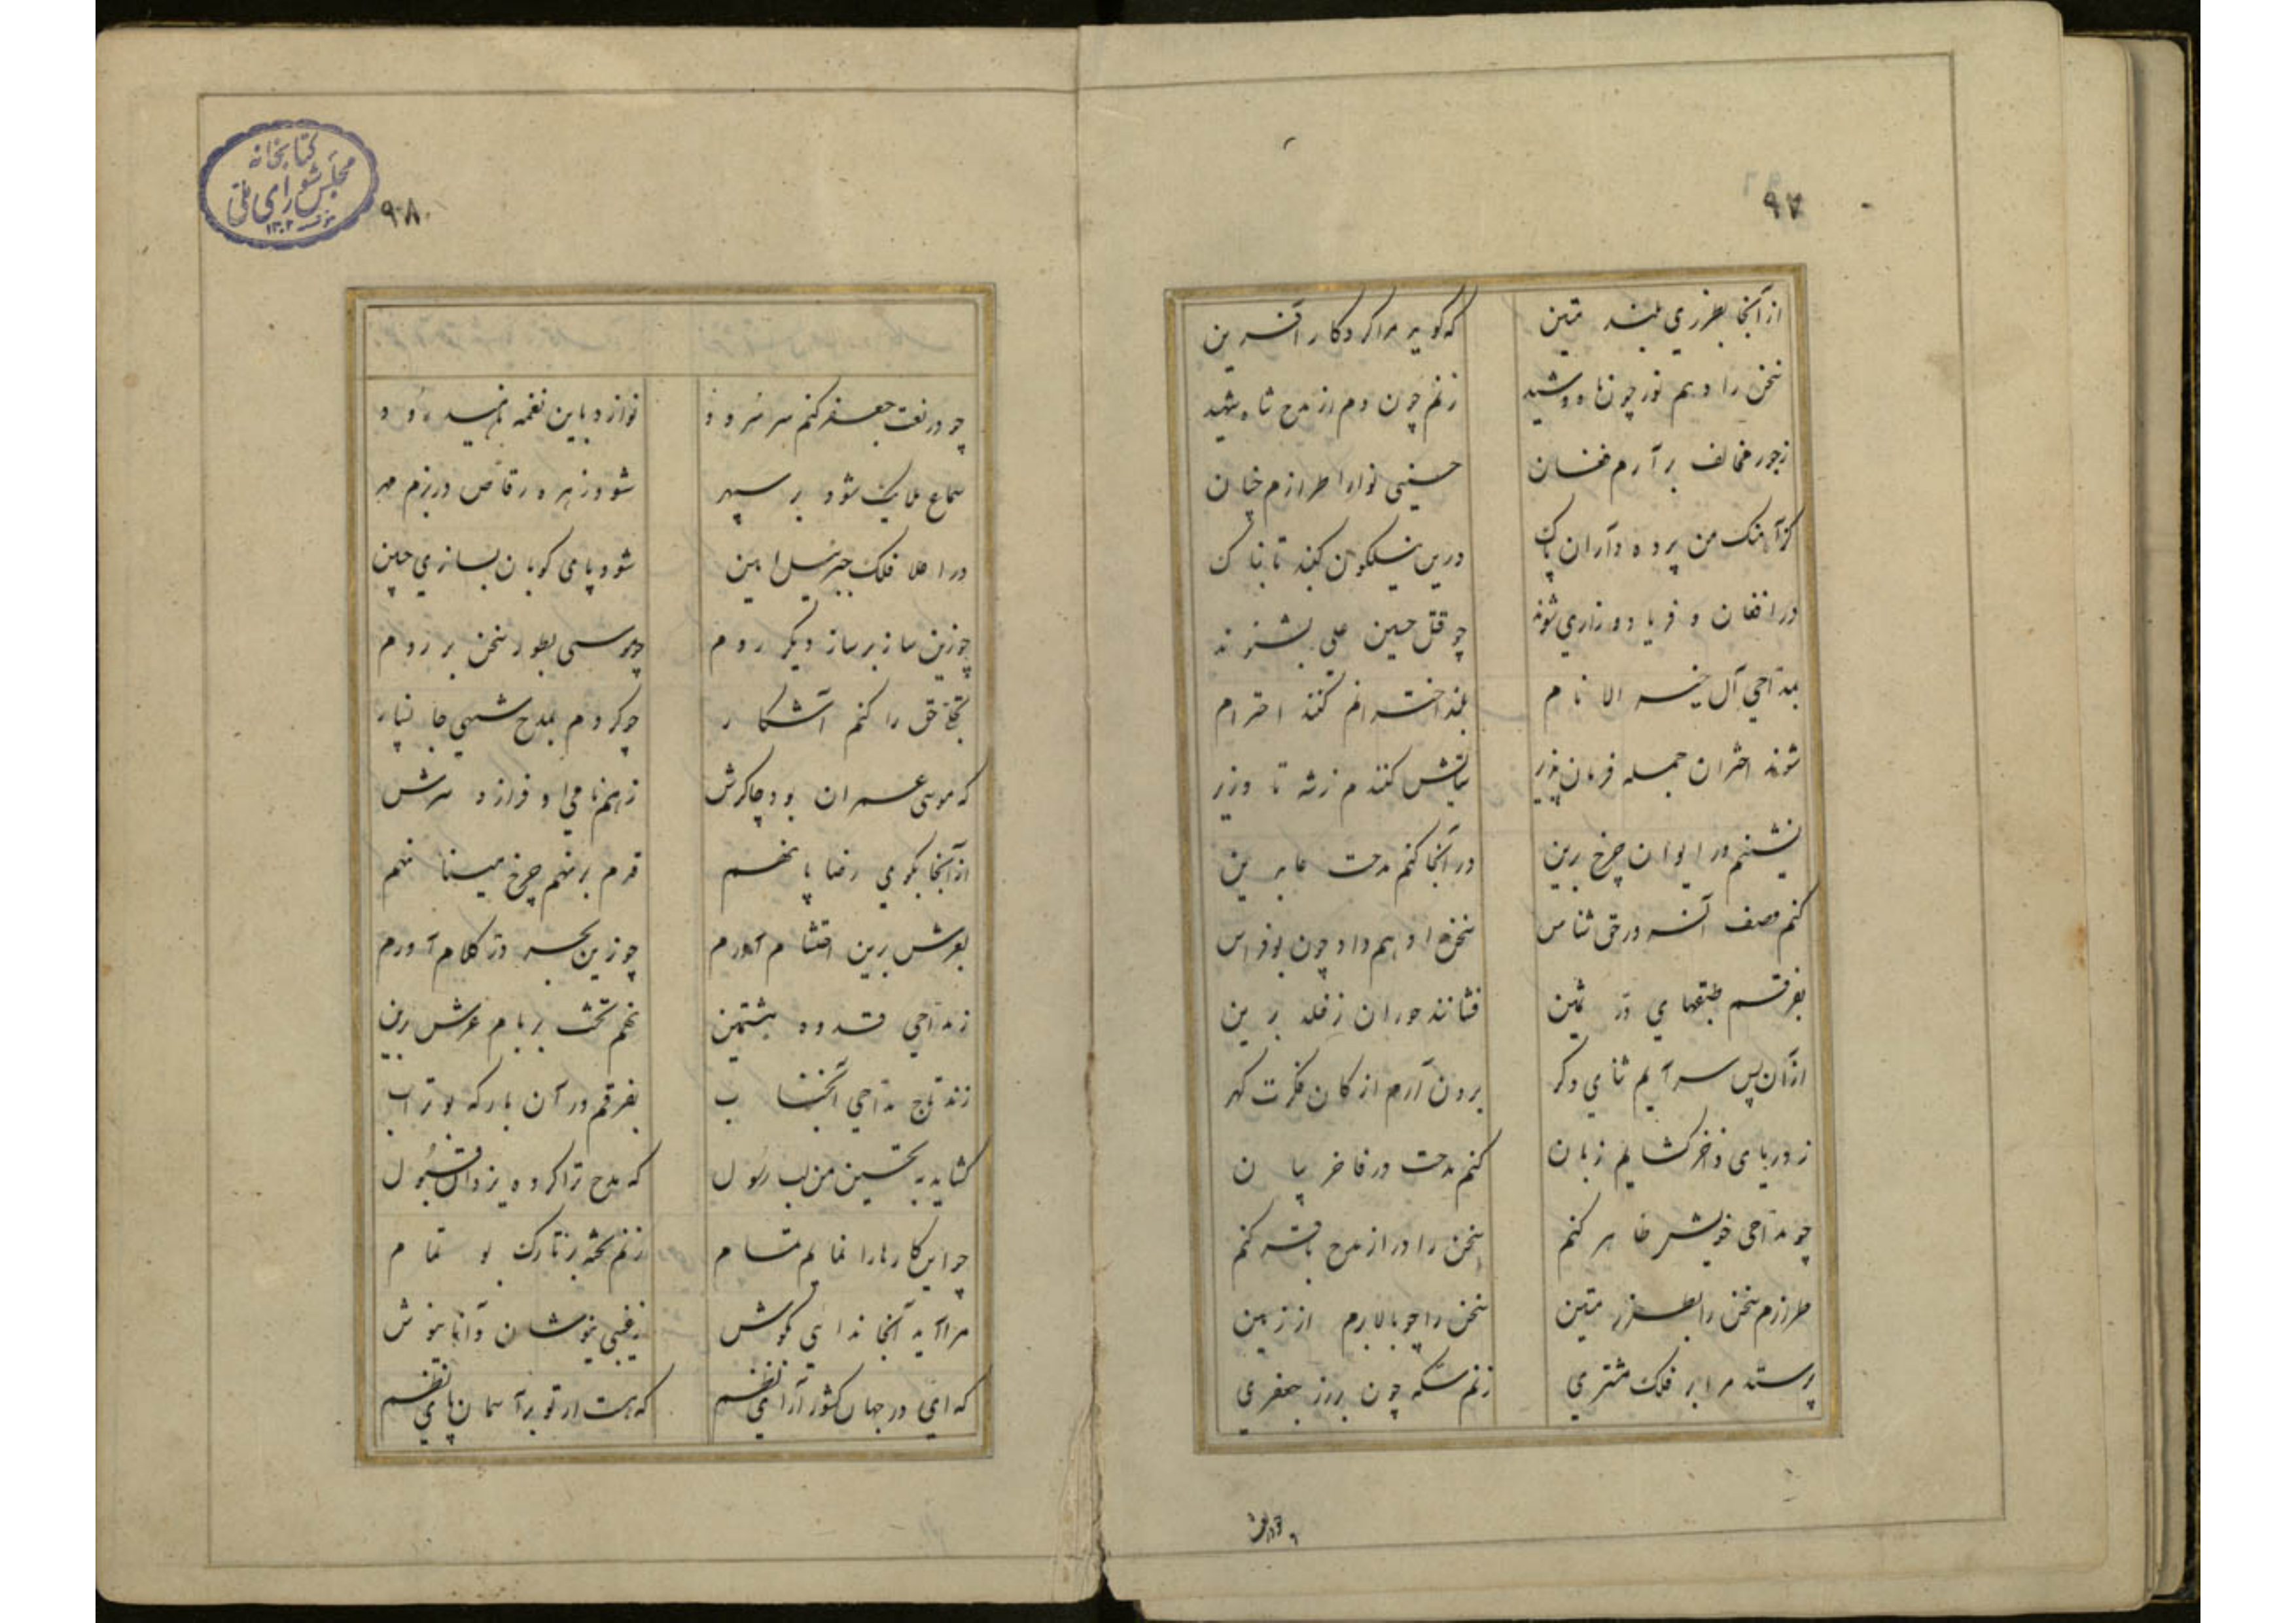 ۹۷
از آنجا بطرزی بلند متین که گوید مرا کردگار آفرین
سخن را دهم نور چون ماه و شید زنم چون دم از مدح شاه شهید
ز جور مخالف برآرم فغان حسینی نوا را طرازم چنان
کز آهنگ من پرده داران پاک درین نیلگون گنبد تابناک
در افغان و فریاد و زاری شوند چو قتل حسین علی بشنوند
بمداحی آل خیر الانام بلند اخترانم کنند احترام
شوند اختران جمله فرمان پذیر ستایش کنندم ز شه تا وزیر
نشینم در ایوان چرخ برین در آنجا کنم مدحت عابدین
کنم وصف آن سرور حق شناس سخن را دهم داد چون بوفراس
بفرقم طبقهای در ثمین فشانند حوران ز خلد برین
از آن پس سرآیم ثنای دگر برون آرم از کان فکرت گهر
ز دریای ذخر گشایم زبان کنم مدحت در فاخر بیان
چو مداحی خویش ظاهر کنم سخن را در از مدح باقر کنم
طرازم سخن را بطرز متین سخن را چو بالا برم از زمین
پرستد مرا بر فلک مشتری زنم سکه چون بر زر جعفری
چو در نعت
۹۸
کتابخانه
مجلس شورای ملی
مؤسسه ۱۳۰۲
چو در نعت جعفر کنم سر سرود نوازد باین نغمه ناهید رود
سماع ملایک شود بر سپهر شود زهره رقاص در بزم مهر
در اعلا فلک جبرئیل امین شود پای کوبان بسازی چنین
چو زین ساز بر ساز دیگر روم چو موسی بطور سخن بر روم
تجلی حق را کنم آشکار چو کردم بمدح شهی جان نثار
که موسی عمران بود چاکرش ز هم نامی او فرازد سرش
از آنجا بکوی رضا پا نهم قدم بر نهم چرخ مینا نهم
بعرش برین احتشام آورم چو زین بحر در کلام آورم
ز مداحی قدوه هشتمین نهم تخت بر بام عرش برین
زند تاج مداحی آنجناب بفرقم در آن بارگه بوتراب
گشاید به تحسین من لب رسول که مدح ترا کرده یزدان قبول
چو این کارها را نمایم تمام زنم تخته بر تارک بو تمام
مرا آید آنجا ندایی بگوش ز غیبی نیوشان دانا نیوش
که ای در جهان کشور آرای نظم که هست از تو بر آسمان پای نظم